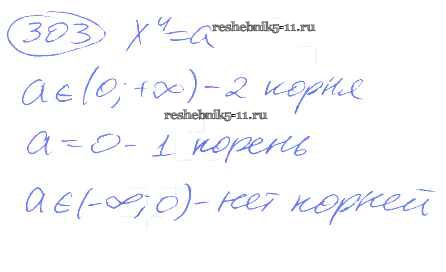 303 x⁴=a
reshebnik5-11.ru
a∈(0;+∞)-2 корня
reshebnik5-11.ru
a=0-1 корень
a∈(-∞;0)-нет корней